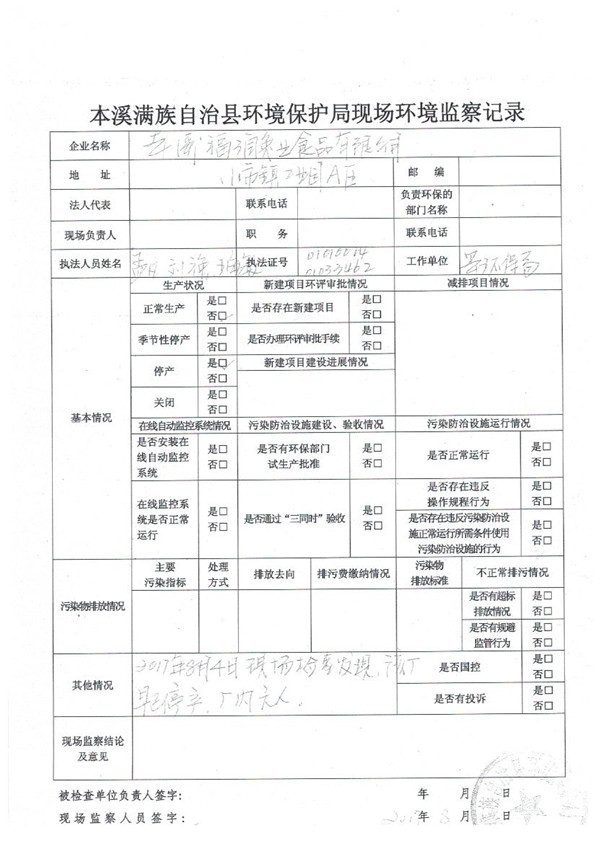 本溪满族自治县环境保护局现场环境监察记录
企业名称 本溪福润肉业食品有限公司
地 址 小市镇工业园A区 邮 编
法人代表 联系电话 负责环保的部门名称
现场负责人 职 务 联系电话
执法人员姓名 执法证号 01010014 01033462 工作单位
基本情况
生产状况 新建项目环评审批情况 减排项目情况
正常生产 是□ 否□ 是否存在新建项目 是□ 否□
季节性停产 是□ 否□ 是否办理环评审批手续 是□ 否□
停产 是□ 否□ 新建项目建设进展情况
关闭 是□ 否□
在线自动监控系统情况 污染防治设施建设、验收情况 污染防治设施运行情况
是否安装在线自动监控系统 是□ 否□ 是否有环保部门试生产批准 是□ 否□ 是否正常运行 是□ 否□
在线监控系统是否正常运行 是□ 否□ 是否通过“三同时”验收 是□ 否□ 是否存在违反操作规程行为 是□ 否□
是否存在违反污染防治设施正常运行所需条件使用污染防治设施的行为 是□ 否□
污染物排放情况
主要污染指标 处理方式 排放去向 排污费缴纳情况 污染物排放标准 不正常排污情况
是否有超标排放情况 是□ 否□
是否有规避监管行为 是□ 否□
其他情况
2017年8月4日现场检查发现,该厂
早已停产,厂内无人。
是否国控 是□ 否□
是否有投诉 是□ 否□
现场监察结论及意见
被检查单位负责人签字: 年 月 日
现场监察人员签字: 2017年 8 月 日